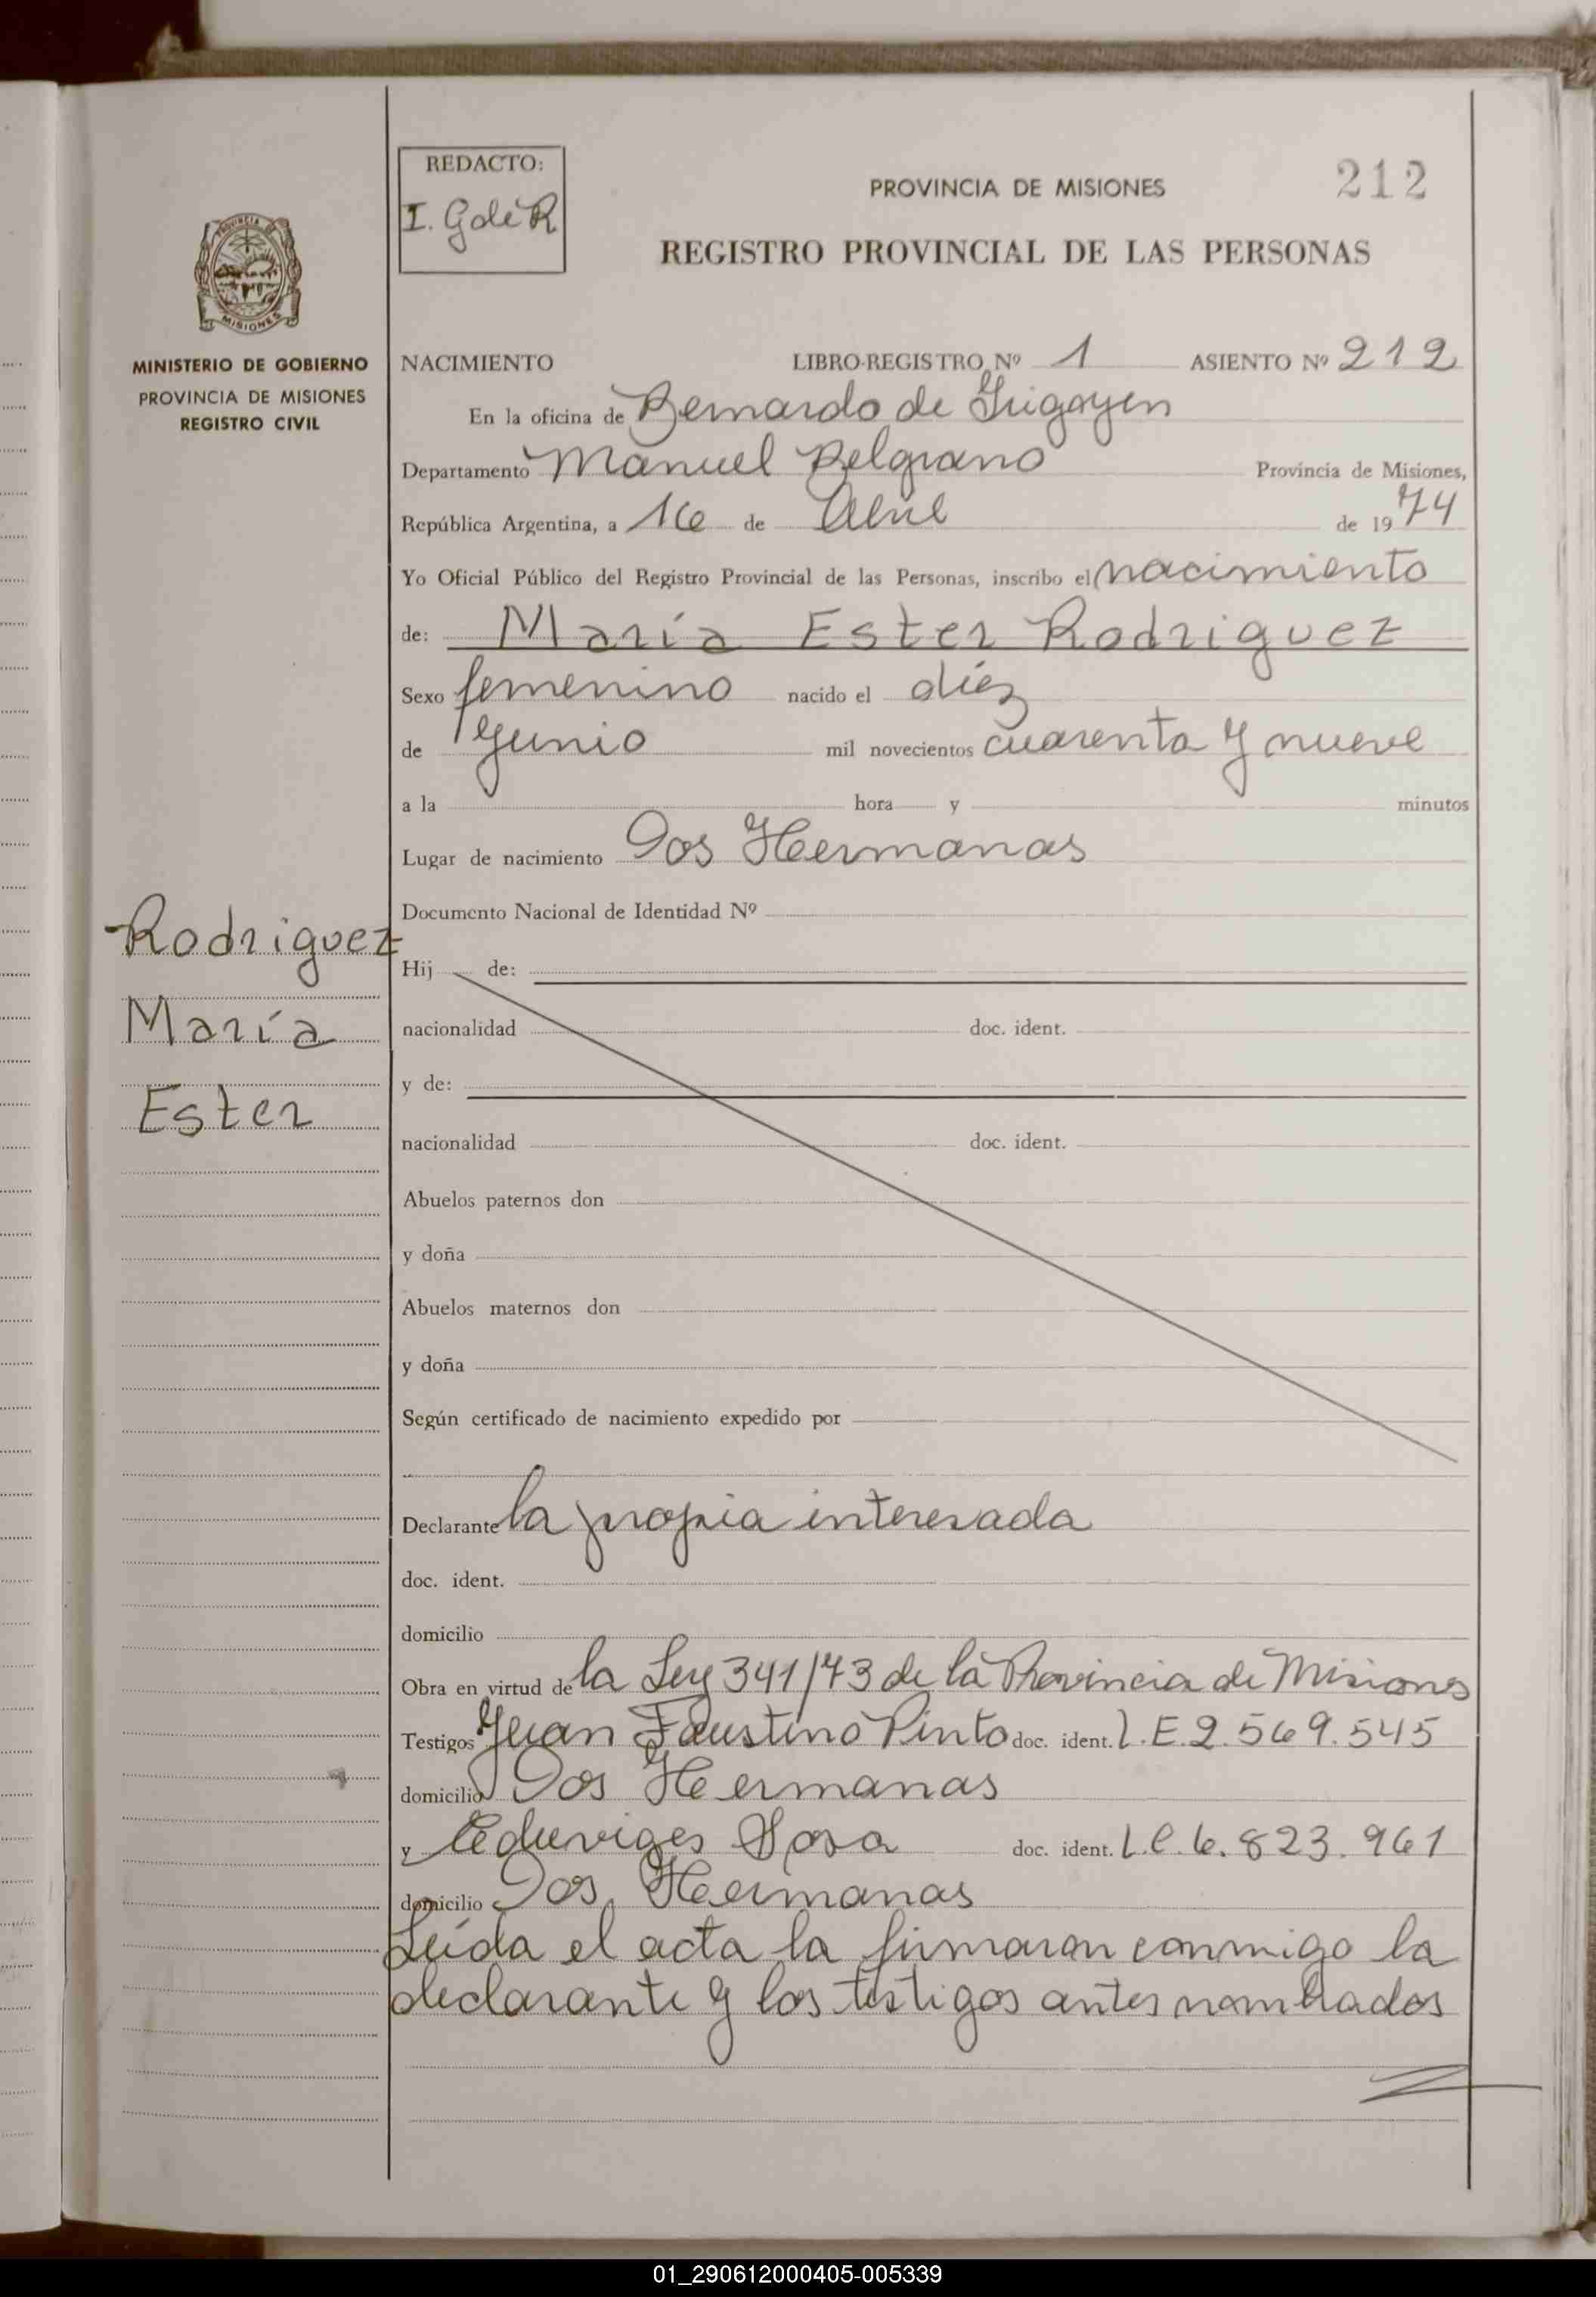 REDACTO:
I. Golé R
PROVINCIA DE MISIONES
212
REGISTRO PROVINCIAL DE LAS PERSONAS
MISIONES
MINISTERIO DE GOBIERNO
PROVINCIA DE MISIONES
REGISTRO CIVIL
NACIMIENTO LIBRO-REGISTRO Nº 1 ASIENTO Nº 212
En la oficina de Bernardo de Irigoyen
Departamento Manuel Belgrano Provincia de Misiones,
República Argentina, a 16 de Abril de 1974
Yo Oficial Público del Registro Provincial de las Personas, inscribo el nacimiento
de: María Ester Rodriguez
Sexo femenino nacido el diéz
de Junio mil novecientos cuarenta y nueve
a la hora y minutos
Lugar de nacimiento Dos Hermanas
Documento Nacional de Identidad Nº
Rodriguez
María
Ester
Hij de:
nacionalidad doc. ident.
y de:
nacionalidad doc. ident.
Abuelos paternos don
y doña
Abuelos maternos don
y doña
Según certificado de nacimiento expedido por
Declarante la propia interesada
doc. ident.
domicilio
Obra en virtud de la Ley 341/73 de la Provincia de Misiones
Testigos Juan Faustino Pinto doc. ident. L.E. 2.569.545
domicilio Dos Hermanas
y Eduviges Sosa doc. ident. L.C. 6.823.961
domicilio Dos Hermanas
Leída el acta la firmaron conmigo la
declarante y los testigos antes nombrados
01_290612000405-005339